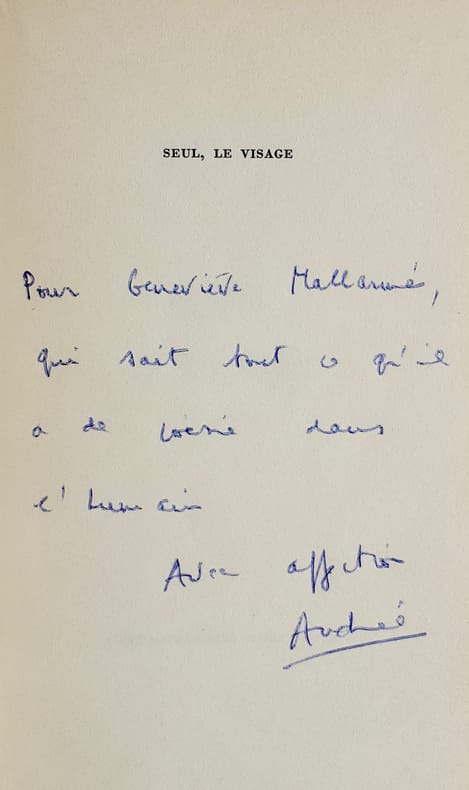 SEUL, LE VISAGE
Pour Geneviève Mallarmé,
qui sait tout ce qu'il
a de poésie dans
l'humain
Avec affection
Andrée